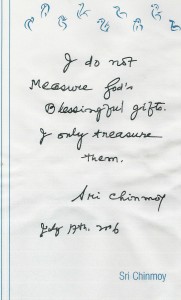 I do not
Measure God's
Blessingful gifts.
I only treasure
them.
Sri Chinmoy
July 17th. 2006
Sri Chinmoy